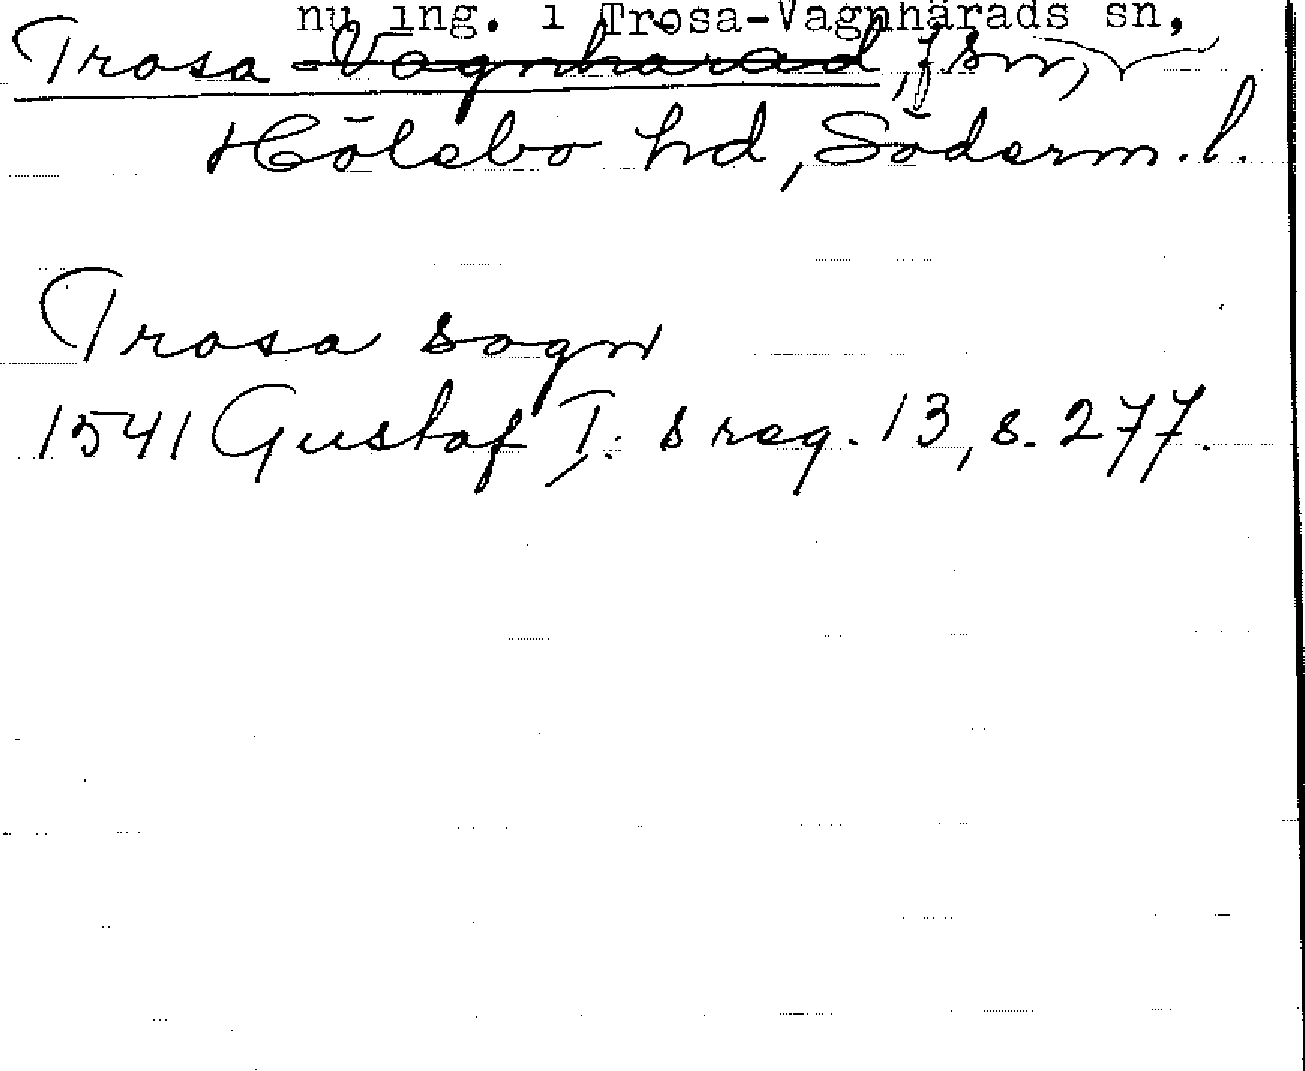 nu ing. i Trosa-Vagnhärads sn,
Trosa -Vagnhärad, f sn,
Hölebo hd, Söderm. l.
Trosa sogn
1541 Gustaf I:s reg. 13, s. 277.